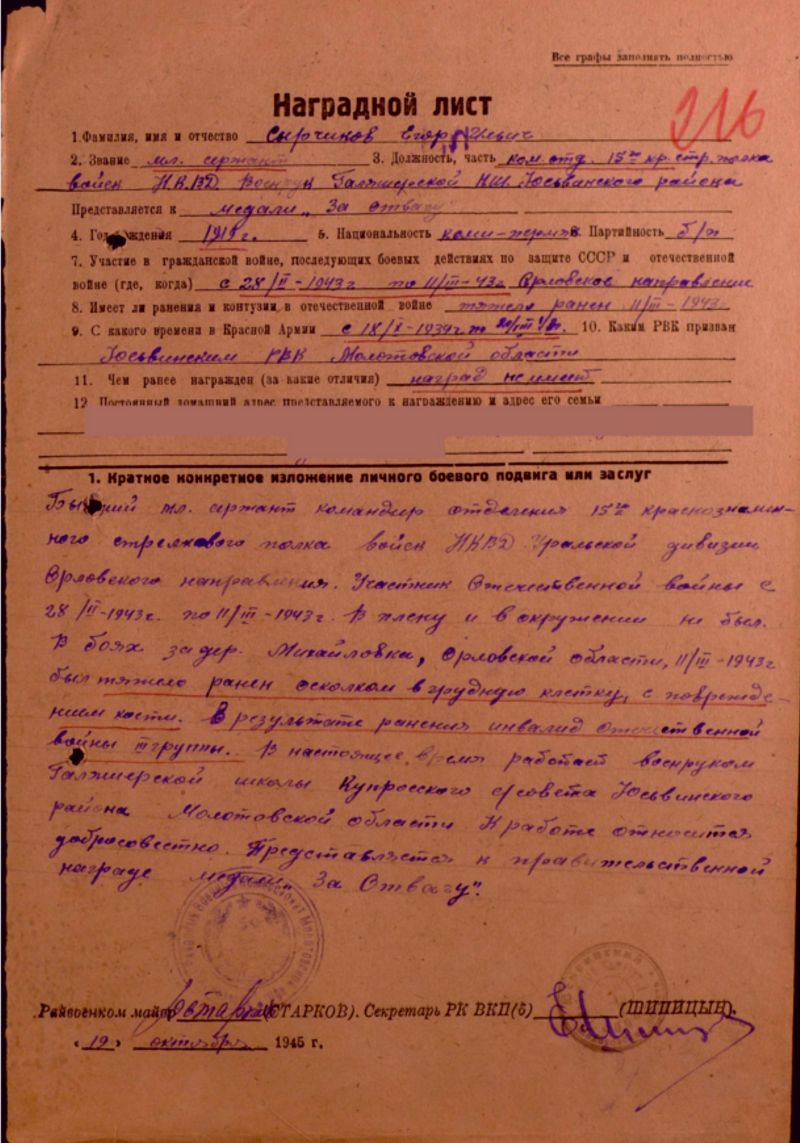 Все графы заполнять полностью
Наградной лист
216
1. Фамилия, имя и отчество Сырчиков Егор
2. Звание мл. сержант 3. Должность, часть ком. отд. 15го кр. стр. полка
войск НКВД Военрук Галяшерской НШ Юсьвинского района
Представляется к медали „За отвагу"
4. Год рождения 1919 г. 5. Национальность коми-пермяк 6. Партийность б/п
7. Участие в гражданской войне, последующих боевых действиях по защите СССР и отечественной
войне (где, когда) с 28/II-1943г по 11/III-43г Орловское направление
8. Имеет ли ранения и контузии в отечественной войне тяжело ранен 11/III-1943
9. С какого времени в Красной Армии с 18/X-1939г. по 10. Каким РВК призван
Юсьвинским РВК Молотовской области
11. Чем ранее награжден (за какие отличия) наград не имеет
12 Постоянный домашний адрес представляемого к награждению и адрес его семьи
1. Краткое конкретное изложение личного боевого подвига или заслуг
Бывший мл. сержант командир отделения 15го краснознамен-
ного стрелкового полка войск НКВД Уральской дивизии
Орловского направления. Участник Отечественной войны с
28/II-1943г. по 11/III-1943г. В плену и в окружении не был.
В боях за дер. Михайловка, Орловской области, 11/III-1943г
был тяжело ранен осколком в грудную клетку, с поврежде-
нием кости. В результате ранения инвалид отечественной
войны III группы. В настоящее время работает военруком
Галяшерской школы Купросского с/совета Юсьвинского
района Молотовской области К работе относится
добросовестно. Представляется к правительственной
награде медали „За Отвагу".
Райвоенком майор (СТАРКОВ). Секретарь РК ВКП(б) (ШИПИЦЫН).
„19" октября 1945 г.